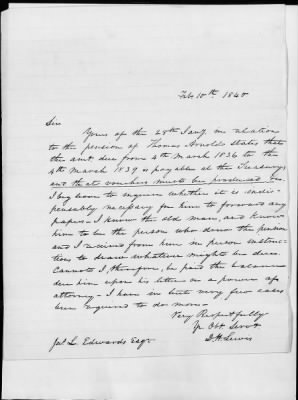 Feb 10th, 1840
Sir
Yours of the 28th Jany in relation
to the pension of Thomas Arnold states that
the amt due from 4th March 1836 to the
4th March 1839 is payable at the Treasury
and that vouchers must be produced.
I beg leave to inquire whether it is indis-
pensably necessary for him to forward any
papers. I know the old man, and know
him to be the person who draws the pension
and I received from him in person instruc-
tions to draw whatever might be due.
Cannot I, therefore, be paid the balance
due him upon his letter or a power of
attorney - I have in but very few cases
been required to do more.
Very Respectfully
Yr Obt Servt
D H Lewis
Jas L. Edwards Esqr